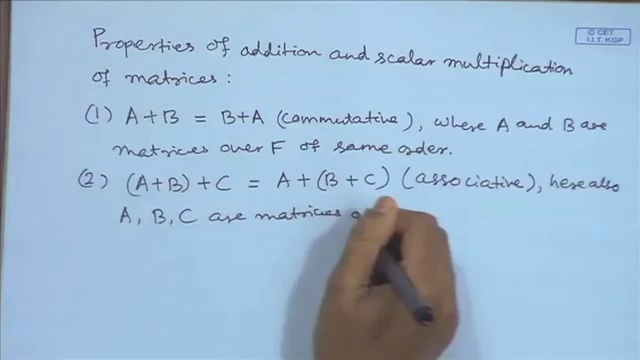 © CET
I.I.T. KGP
Properties of addition and scalar multiplication
of matrices :
(1) A+B = B+A (commutative), where A and B are
matrices over F of same order.
(2) (A+B)+C = A+(B+C) (associative), here also
A, B, C are matrices